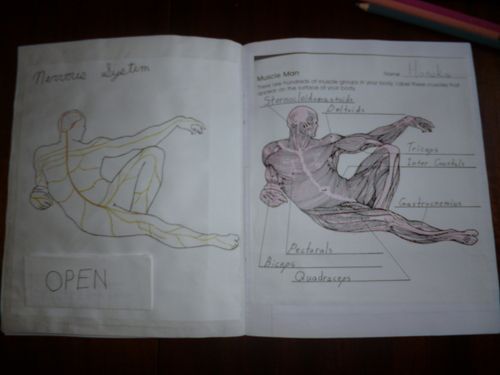 Nervous System
OPEN
Muscle Man
Name Honoka
There are hundreds of muscle groups in your body. Label these muscles that
appear on the surface of your body.
Sternocleidomastoids
Deltoids
Triceps
Inter Costals
Gastrocnemius
Pectorals
Biceps
Quadraceps